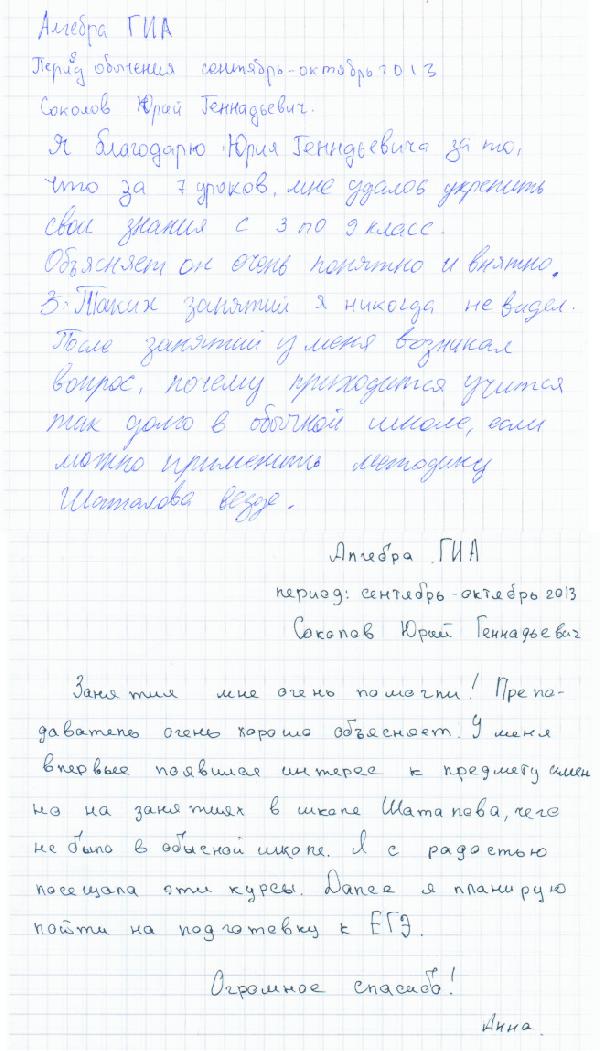 Алгебра ГИА
Период обучения сентябрь-октябрь 2013
Соколов Юрий Геннадьевич.
Я благодарю Юрия Генндьевича за то,
что за 7 уроков, мне удалов укрепить
свои знания с 3 по 9 класс.
Объясняет он очень понятно и внятно.
Таких занятий я никогда не видел.
После занятий у меня возникал
вопрос, почему приходится учится
так долго в обычной школе, если
можно применить методику
Шаталова везде.
Алгебра ГИА
период: сентябрь-октябрь 2013
Соколов Юрий Геннадьевич
Занятия мне очень помогли! Препо-
даватель очень хорошо объясняет. У меня
впервые появился интерес к предмету имен
но на занятиях в школе Шаталова, чего
не было в обысной школе. Я с радостью
посещала эти курсы. Далее я планирую
пойти на подготовку к ЕГЭ.
Огромное спасибо!
Анна.